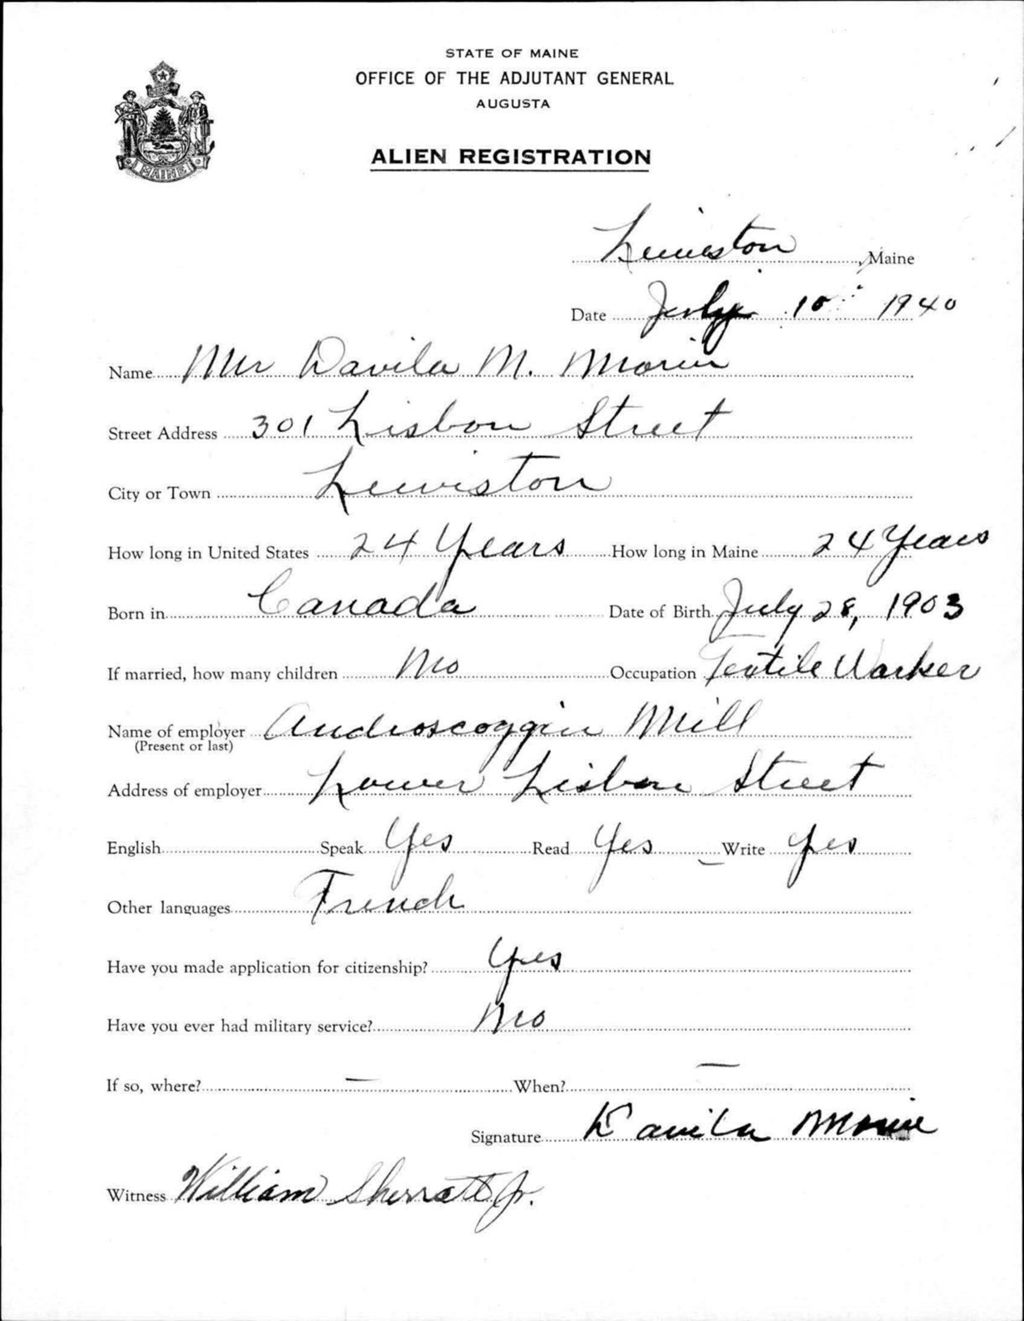 STATE OF MAINE
OFFICE OF THE ADJUTANT GENERAL
AUGUSTA
MAINE
ALIEN REGISTRATION
Lewiston, Maine
Date July 10 1940
Name Mr Davila M. Morin
Street Address 301 Lisbon Street
City or Town Lewiston
How long in United States 24 Years How long in Maine 24 Years
Born in Canada Date of Birth July 28, 1903
If married, how many children No Occupation Textile Worker
Name of employer Androscoggin Mill
(Present or last)
Address of employer Lower Lisbon Street
English Speak Yes Read Yes Write Yes
Other languages French
Have you made application for citizenship? Yes
Have you ever had military service? No
If so, where? — When? —
Signature Davila Morin
Witness William Sherratt Jr.